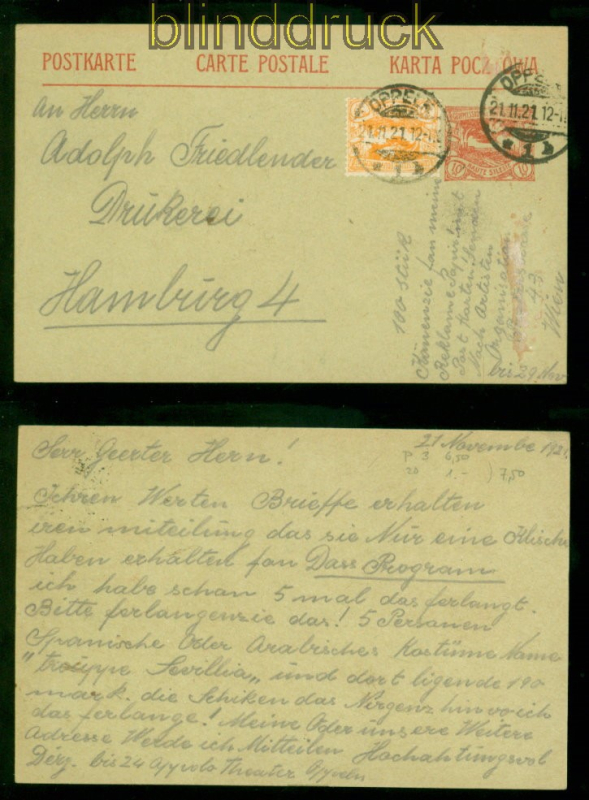 blinddruck
POSTKARTE CARTE POSTALE KARTA POCZTOWA
OPPELN
21.11.21.12-1
1
OPPELN
21.11.21.12-1
1
10 10
An Herrn
Adolph Friedlender
Drükerei
Hamburg 4
100 stük
fan meine
Reklame Papir mit
Post Karten senden
Nach Artisten
Organisation
Wien
bis 29 Nov
Serr Geerter Hern!
21 Novembe 1921
P 3 6,50
20 1.- ) 7,50
Ihren Werten Brieffe erhalten
iren miteilung das sie Nur eine Klische
Haben erhälteil fan Dass Program
ich habe schan 5 mal das ferlangt.
Bitte ferlangenzie das! 5 Personen
Spanische Oder Arabisches Kostüme Name
"trouppe Sevillia" und dort ligende 190
mark. die Schiken das Nirgenz hin wo ich
das ferlange! Meine Oder unsere Weitere
Adresse Werde ich Mitteilen Hochahtungsvol
Dérz. bis 24 Theater Oppeln